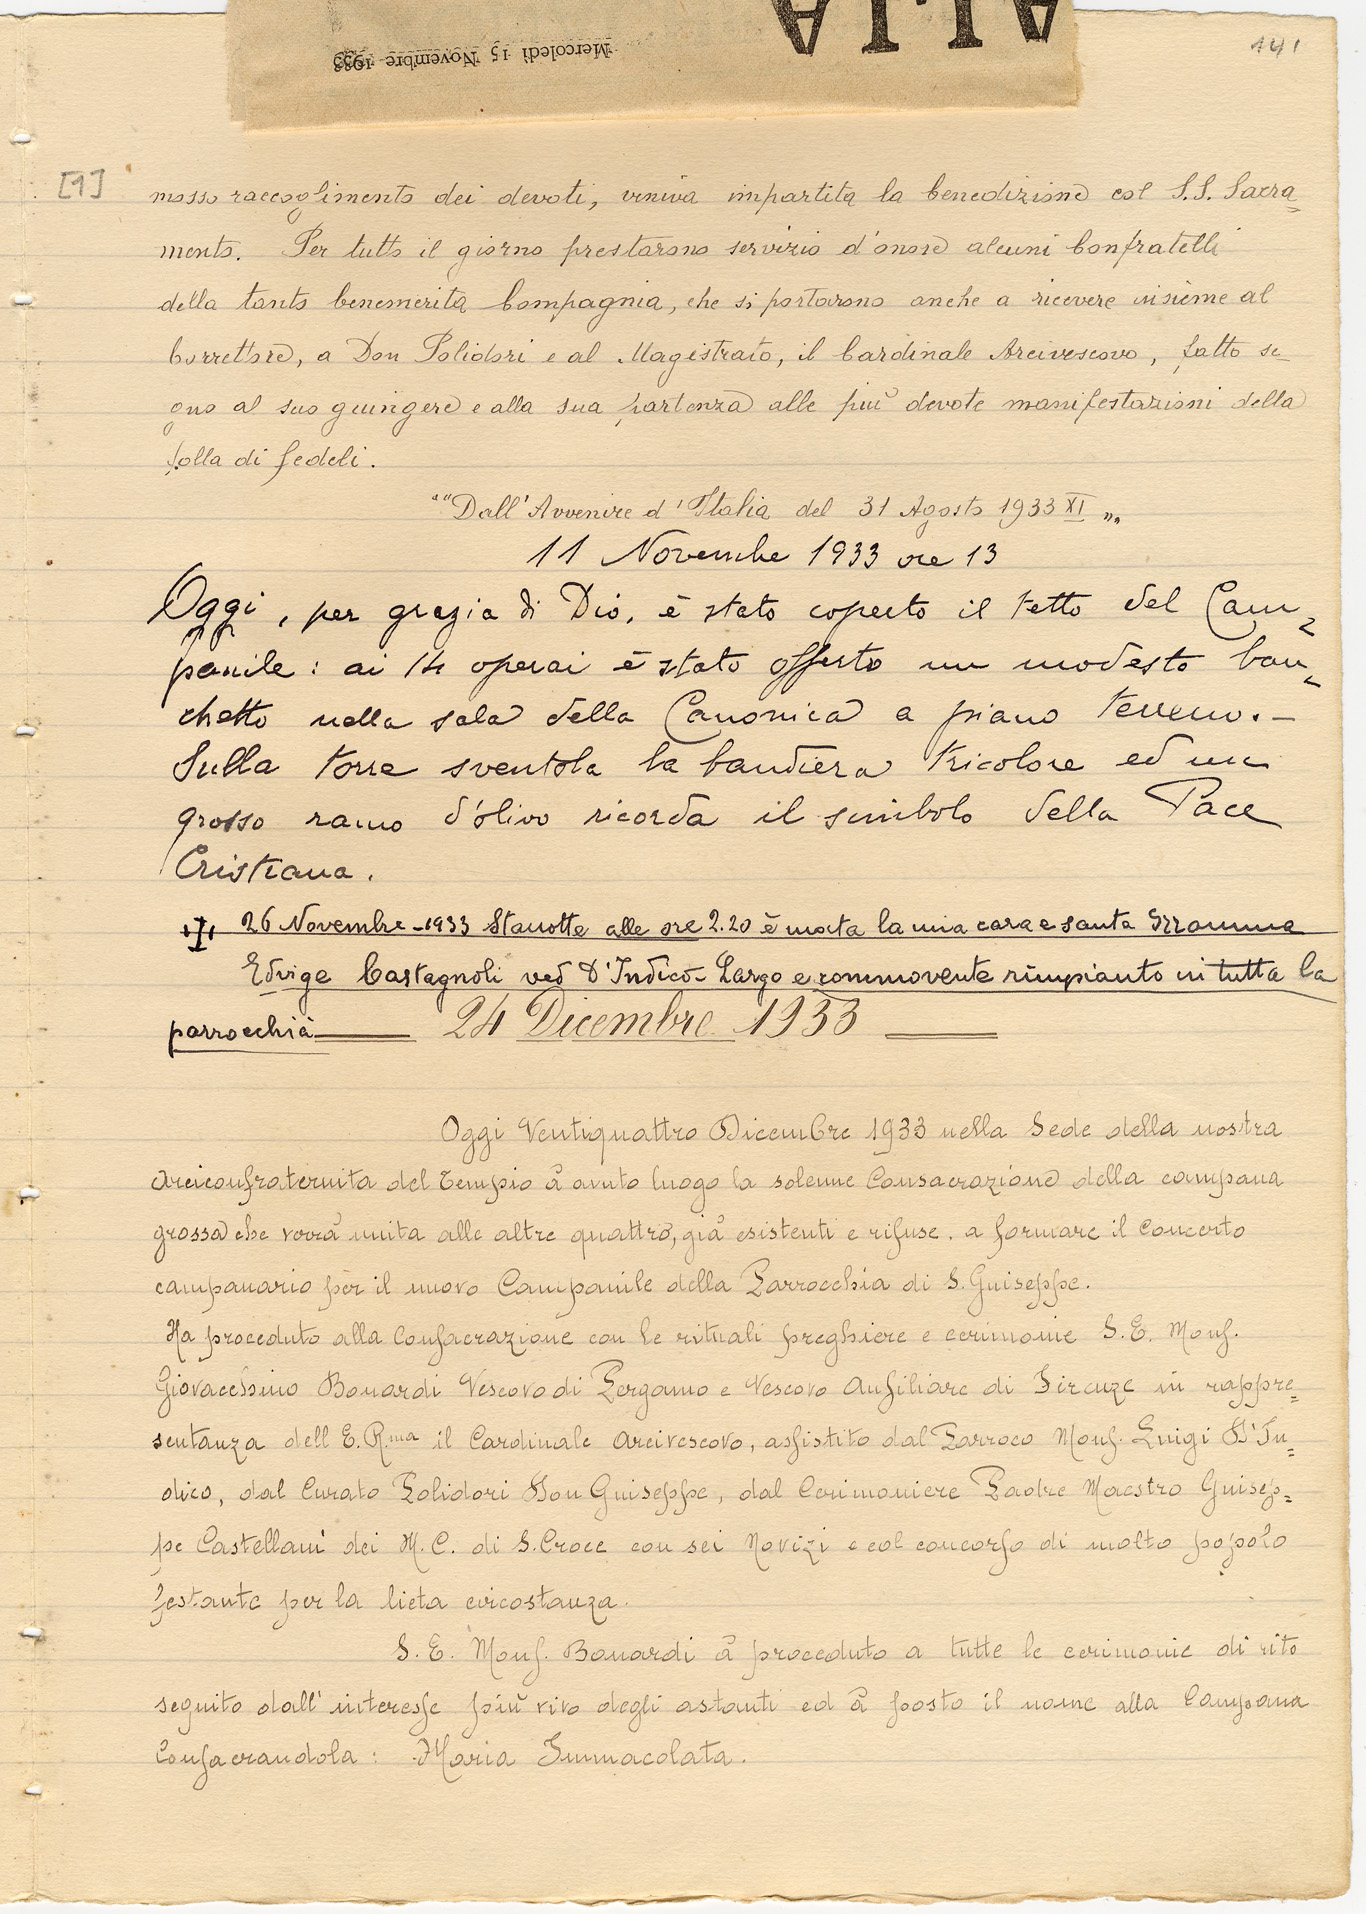 ALIA
Mercoledì 15 Novembre 1933
141
[1]
mosso raccoglimento dei devoti, veniva impartita la benedizione col S.S. Sacra=
mento. Per tutto il giorno prestarono servizio d'onore alcuni Confratelli
della tanto benemerita Compagnia, che si portarono anche a ricevere insieme al
Correttore, a Don Polidori e al Magistrato, il Cardinale Arcivescovo, fatto se-
gno al suo guingere e alla sua partenza alle più devote manifestazioni della
folla di fedeli.
""Dall'Avvenire d'Italia del 31 Agosto 1933 XI „„
11 Novembre 1933 ore 13
Oggi, per grazia di Dio, è stato coperto il tetto del Cam=
panile: ai 14 operai è stato offerto un modesto ban=
chetto nella sala della Canonica a piano terreno.-
Sulla torre sventola la bandiera tricolore ed un
grosso ramo d'olivo ricorda il simbolo della Pace
Cristiana.
26 Novembre-1933 Stanotte alle ore 2.20 è morta la mia cara e santa Mamma
Edvige Castagnoli ved D'Indico- Largo e commovente rimpianto in tutta la
parrocchia
24 Dicembre 1933
Oggi Ventiquattro Dicembre 1933 nella Sede della nostra
Arciconfraternita del Tempio à avuto luogo la solenne Consacrazione della campana
grossa che verrà unita alle altre quattro, già esistenti e rifuse. a formare il Concerto
campanario per il nuovo Campanile della Parrocchia di S. Guiseppe.
Ha proceduto alla Consacrazione con le rituali preghiere e cerimonie S. E. Mons.
Giovacchino Bonardi Vescovo di Pergamo e Vescovo Ausiliare di Firenze in rappre=
sentanza dell E. R.ma il Cardinale Arcivescovo, assistito dal Parroco Mons. Luigi D'In=
dico, dal Curato Polidori Don Guiseppe, dal Cerimoniere Padre Maestro Guisep=
pe Castellani dei M. C. di S. Croce con sei Novizi e col concorso di molto popolo
festante per la lieta circostanza.
S. E. Mons. Bonardi à proceduto a tutte le cerimonie di rito
seguito dall'interesse più vivo degli astanti ed à posto il nome alla Campana
Consacrandola: Maria Immacolata.